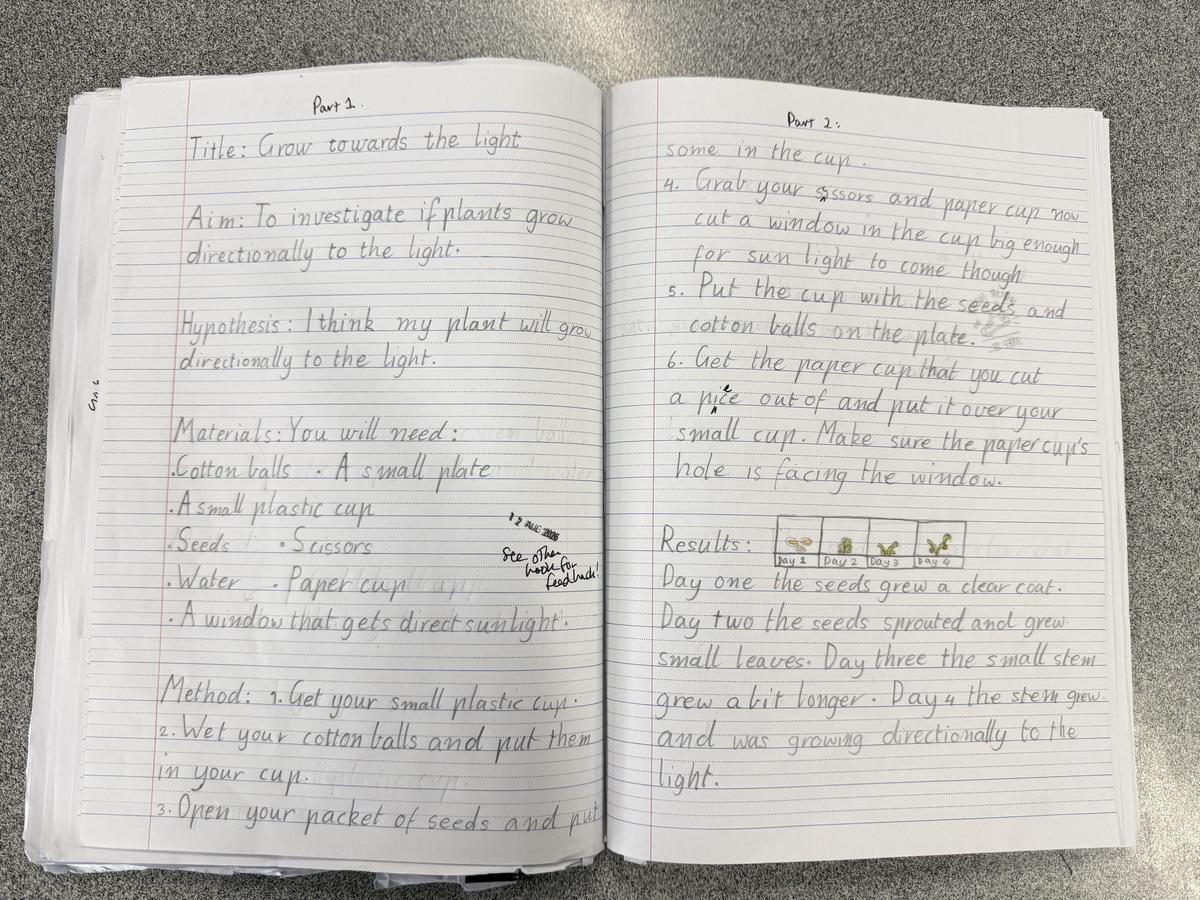 Part 1.
Title: Grow towards the light
Aim: To investigate if plants grow
directionally to the light.
Hypothesis: I think my plant will grow
directionally to the light.
Materials: You will need:
.Cotton balls . A small plate
.A small plastic cup
.Seeds .Scissors
.Water . Paper cup
. A window that gets direct sunlight.
12 AUG
See other
book for
feedback!
Method: 1. Get your small plastic cup.
2. Wet your cotton balls and put them
in your cup.
3. Open your packet of seeds and put
Part 2:
some in the cup.
4. Grab your scissors and paper cup now
cut a window in the cup big enough
for sun light to come though
5. Put the cup with the seeds and
cotton balls on the plate.
6. Get the paper cup that you cut
a piece out of and put it over your
small cup. Make sure the paper cup's
hole is facing the window.
Results:
Day 1 Day 2 Day 3 Day 4
Day one the seeds grew a clear coat.
Day two the seeds sprouted and grew
small leaves. Day three the small stem
grew a bit longer. Day 4 the stem grew
and was growing directionally to the
light.